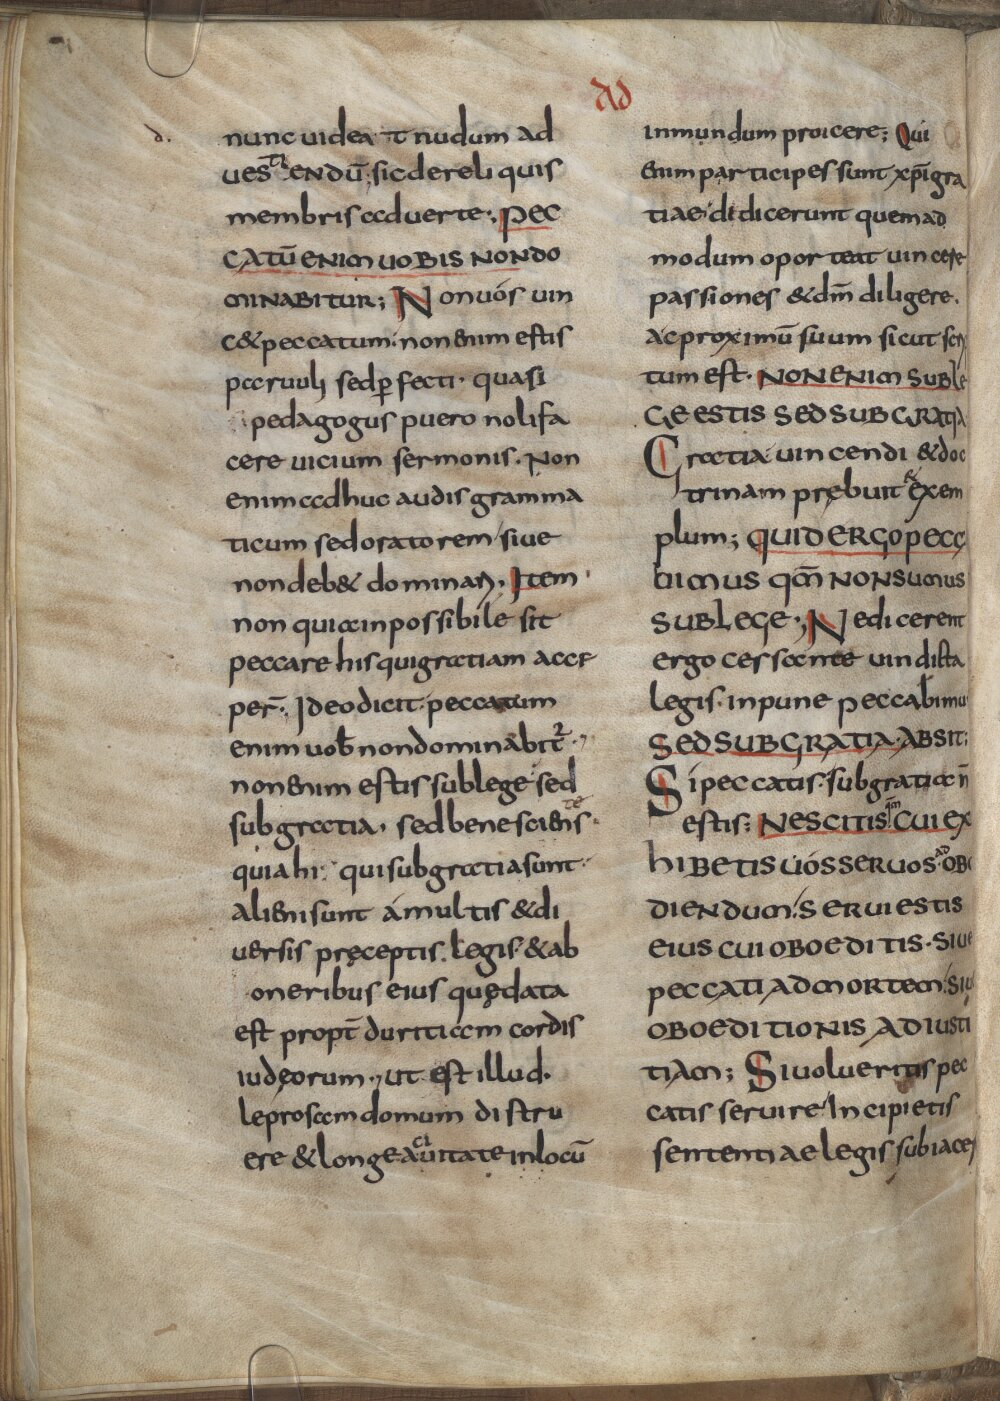 ad
d.
nunc uidea t nudum ad
uestiendū; sic de reli quis
membris aduerte·; pec
catū enim uobis non do
minabitur; Non uós uin
c& peccatum· non enim estis
paruuli sed ꝑfecti· quasi
pedagogus puero noli fa
cere uicium sermonis· Non
enim adhuc audis gramma
ticum sed oratorem siue
non deb& dominari· Item
non quia inpossibile sit
peccare his qui gratiam acce
per̄·; Ideo dicit· peccatum
enim uob̄ non dominabit2·,
non enim estis sub lege sed
sub gratia, sed bene scientes
quia hi· qui sub gratia sunt·
alieni sunt a multis & di
uersis pręceptis· legis· & ab
oneribus eius quę data
est propt̄ duritiam cordis
iudęorum·, ut est illud·
leprosam domum distru
ere & longe a ciuitate in locū
inmundum proicere; Qui
enim participes sunt xp̄i gra
tiae didicerunt quemad
modum oporteat uincere
passiones & dm̄ diligere·
ac proximū suum sicut scrip
tum est· non enim sub le
ge estis sed sub gratia
Gratia uincendi & doc
trinam prębuit & exem
plum; quid ergo pecca
bimus qm̄ non sumus
sub lege·; Ne dicerent
ergo cessante uindicta
legis· inpune peccabimus
sed sub gratia· absit;
Si peccatis· sub gratia n̄
estis; nescitis qm̄ cui ex
hibetis uós seruos ad obo
diendum· serui estis
eius cui oboeditis· siue
peccati ad mortem· siu
oboeditionis ad iusti
tiam; Si uolueritis pec
catis seruire Incipietis
sententiae legis subiacer